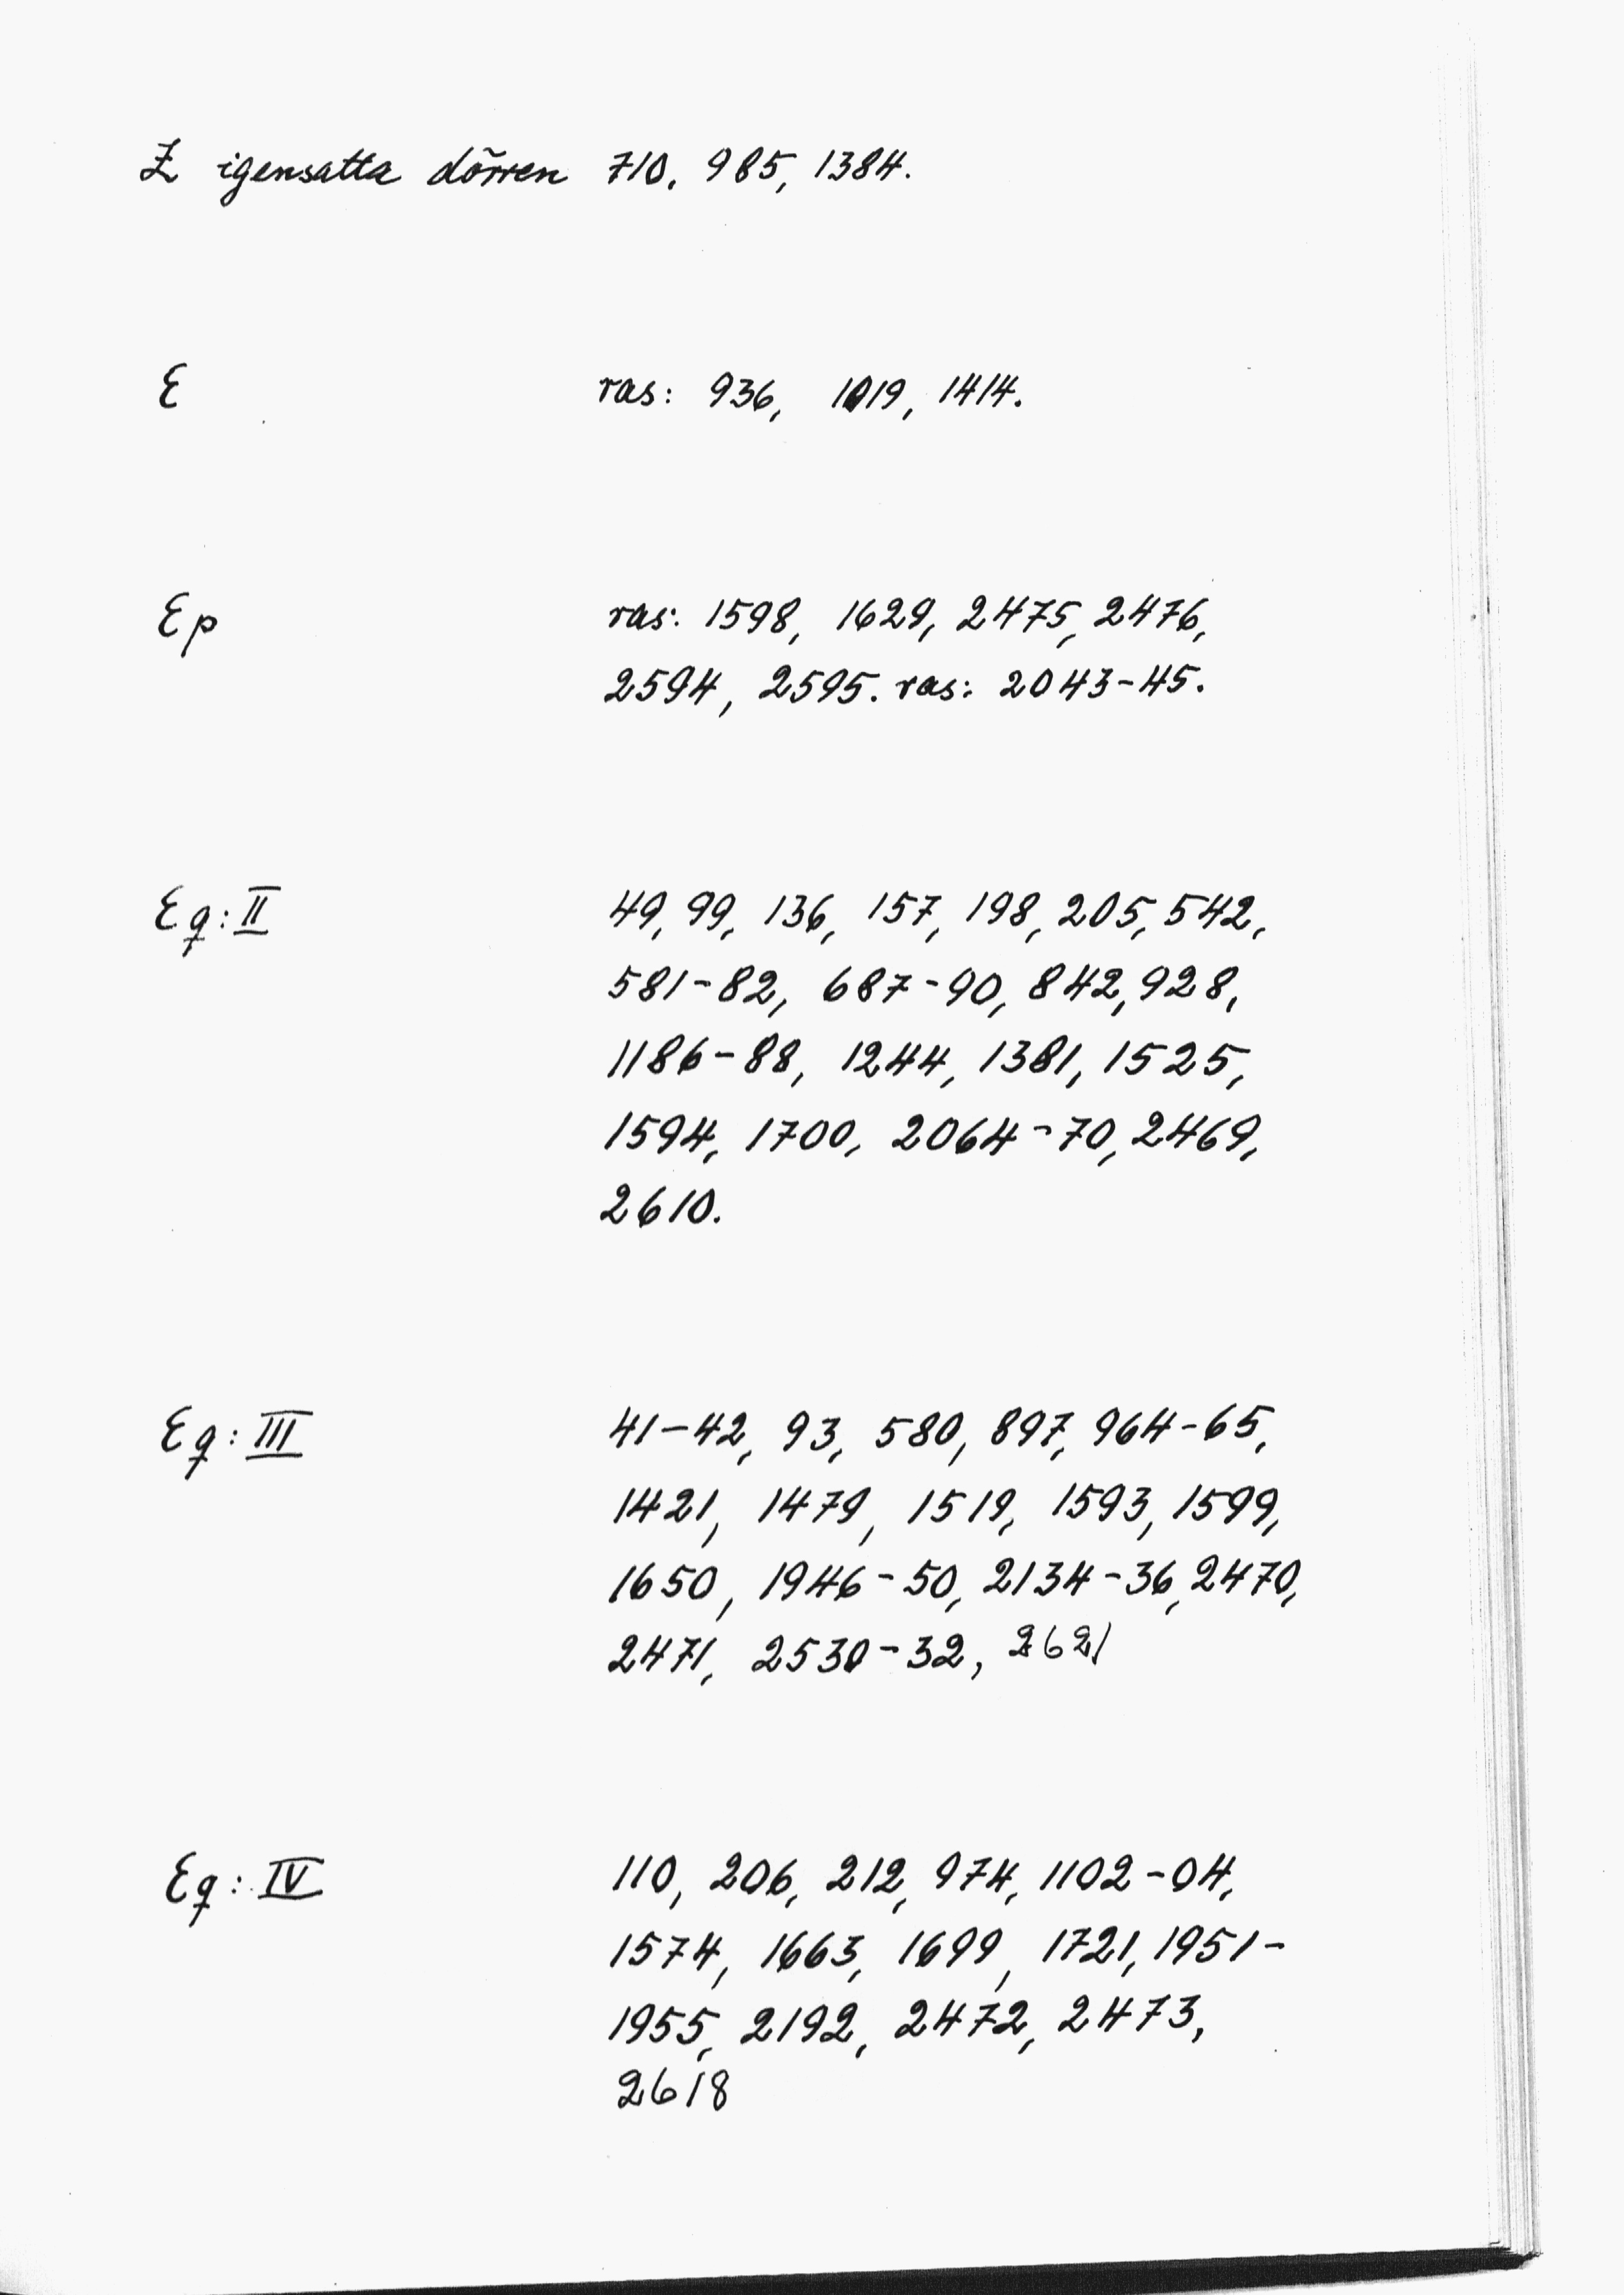 Z igensatta dörren 710, 985, 1384.
E ras: 936, 1019, 1414.
Ep ras: 1598, 1629, 2475, 2476,
2594, 2595. ras: 2043-45.
Eq: II 49, 99, 136, 157, 198, 205, 542,
581-82, 687-90, 842, 928,
1186-88, 1244, 1381, 1525,
1594, 1700, 2064-70, 2469,
2610.
Eq: III 41-42, 93, 580, 897, 964-65,
1421, 1479, 1519, 1593, 1599,
1650, 1946-50, 2134-36, 2470,
2471, 2530-32, 2621
Eq: IV 110, 206, 212, 974, 1102-04,
1574, 1663, 1699, 1721, 1951-
1955, 2192, 2472, 2473,
2618